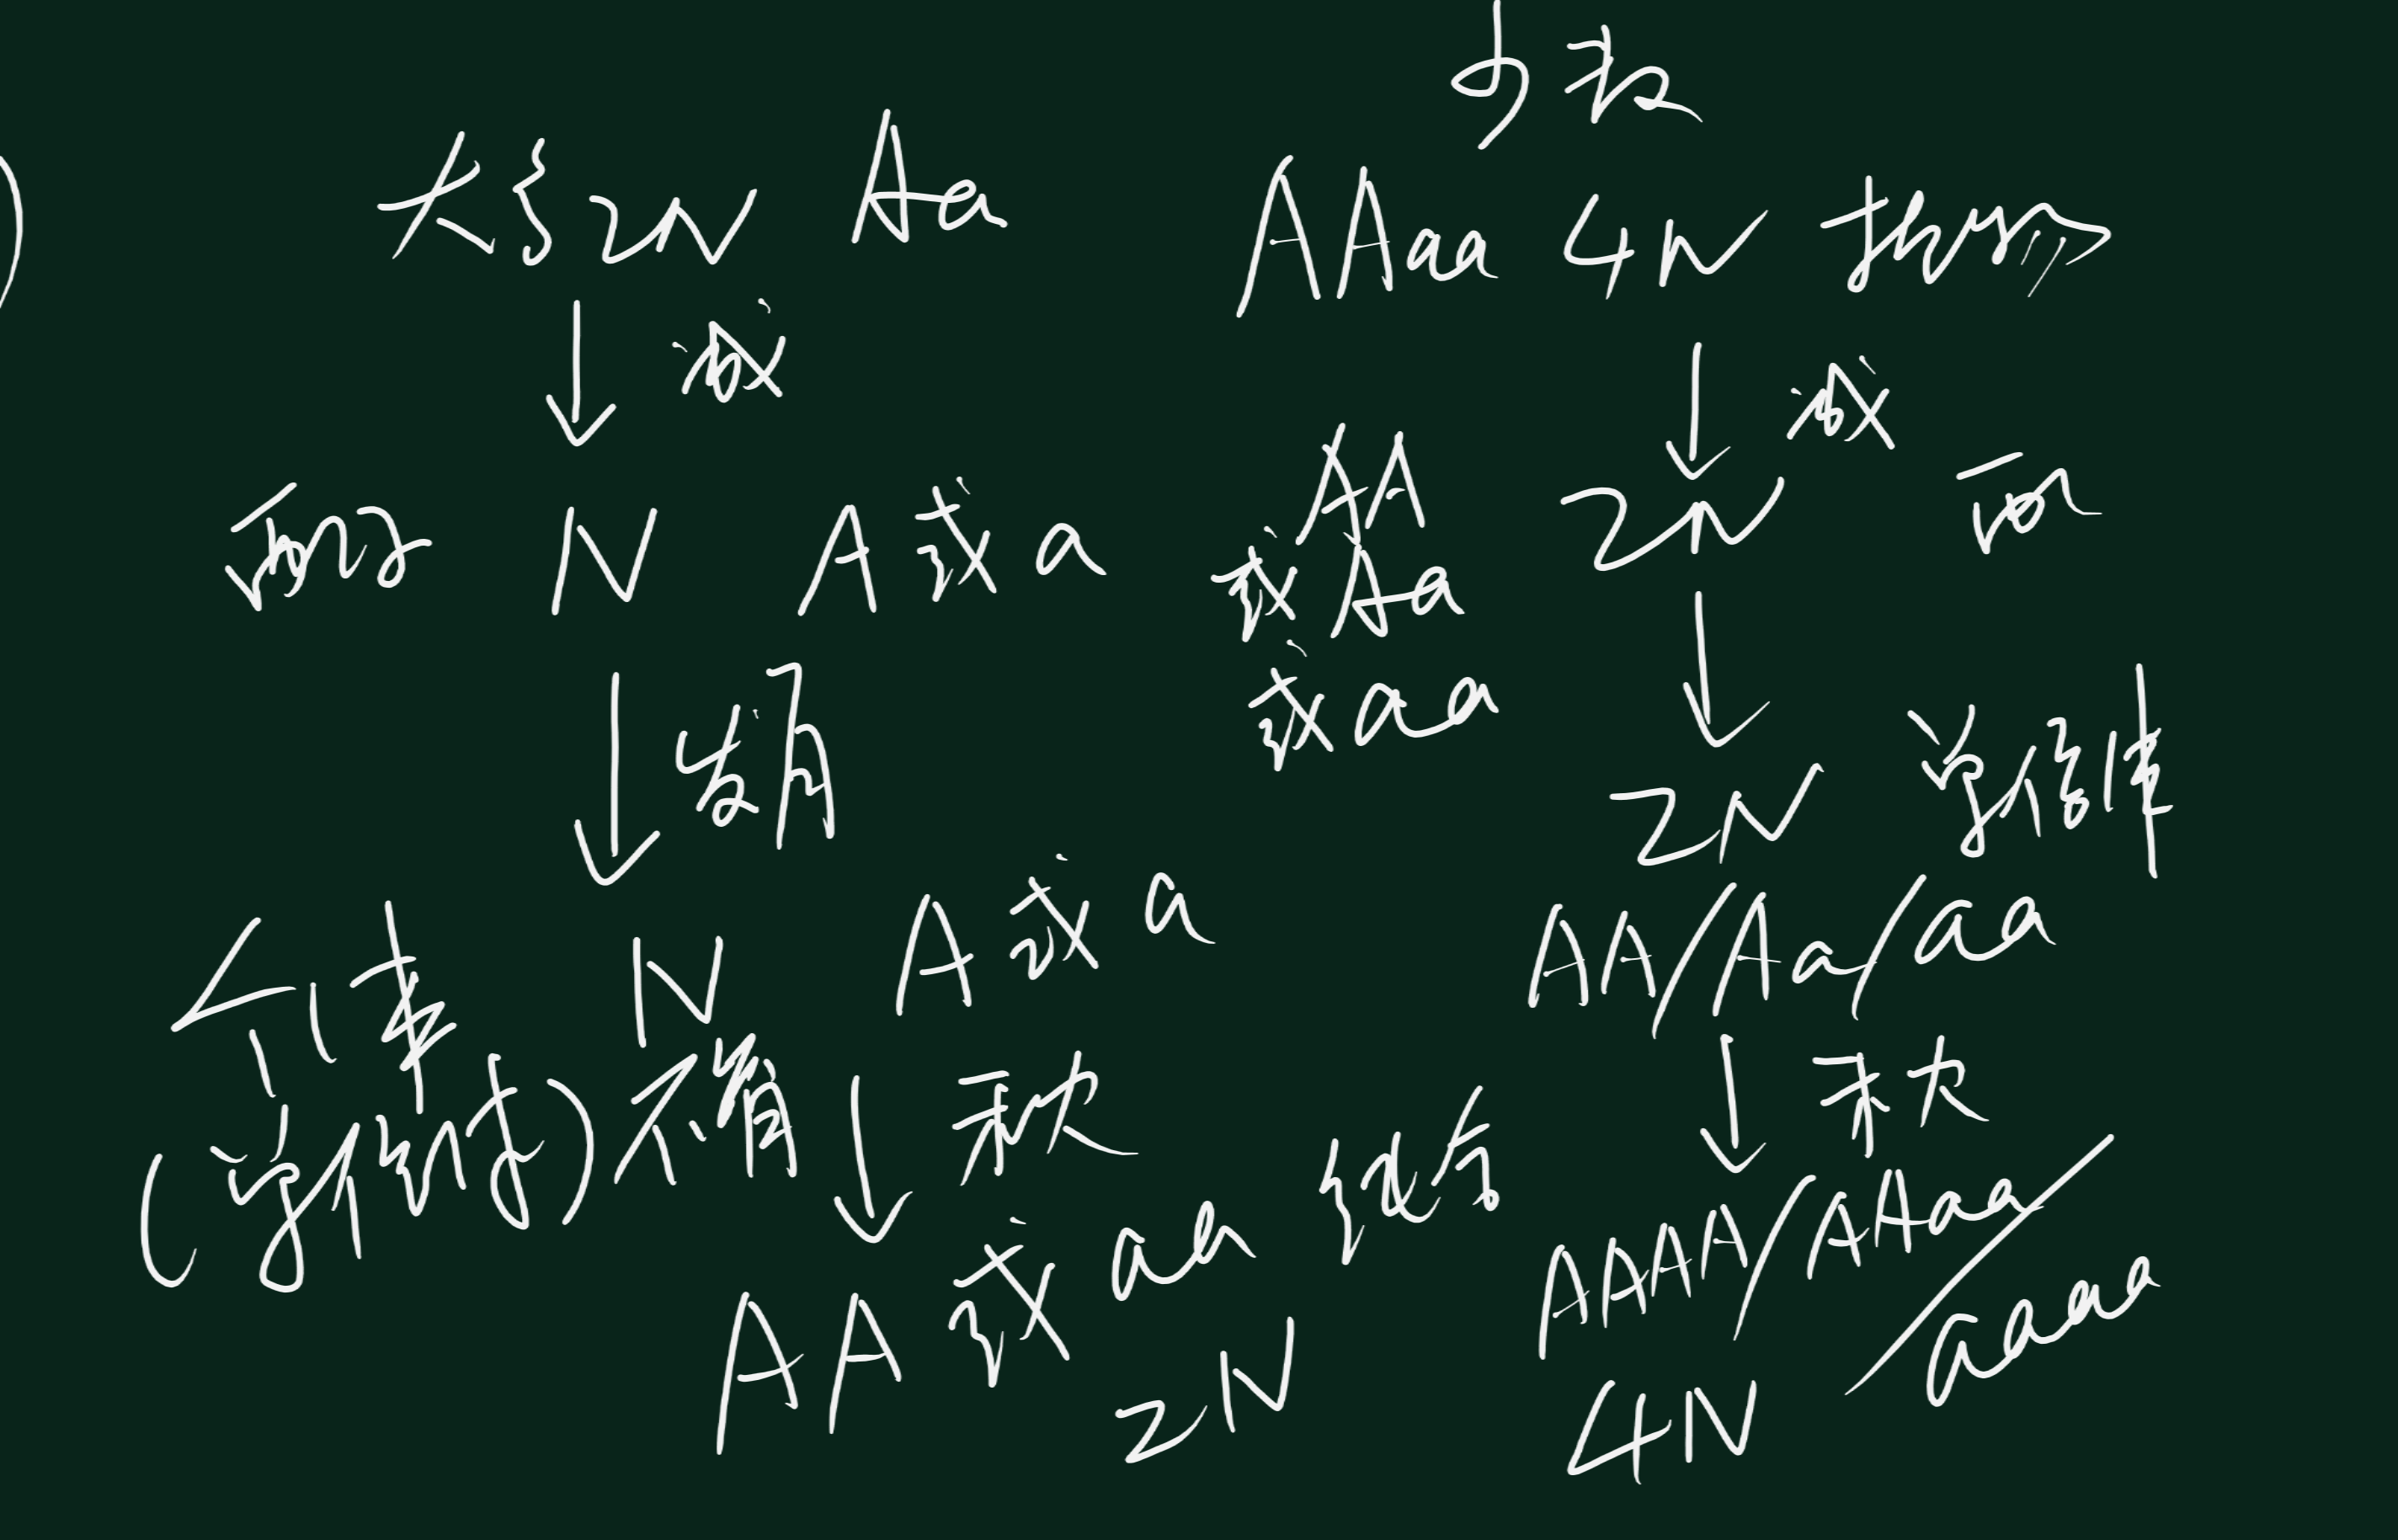 大多2N Aa
↓ 减
配子 N A或a
↓ 发育
个体 N A或a
(单倍体) 不育 ↓ 秋
AA 或 aa 纯合
2N
少数
AAaa 4N 植物
↓ 减
AA 2N 配
或Aa
或aa
↓
2N 单倍体
AA/Aa/aa
↓ 秋
AAAA/AAaa/aaaa
4N